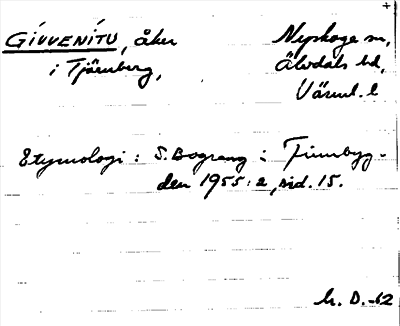 GIVVENITU, åker
i Tjärnberg,
Nyskoga sn,
Älvdals hd,
Värml. l
Etymologi: S. Bograng i Finnbyg-
den 1955:2, sid. 15.
h. D.-62